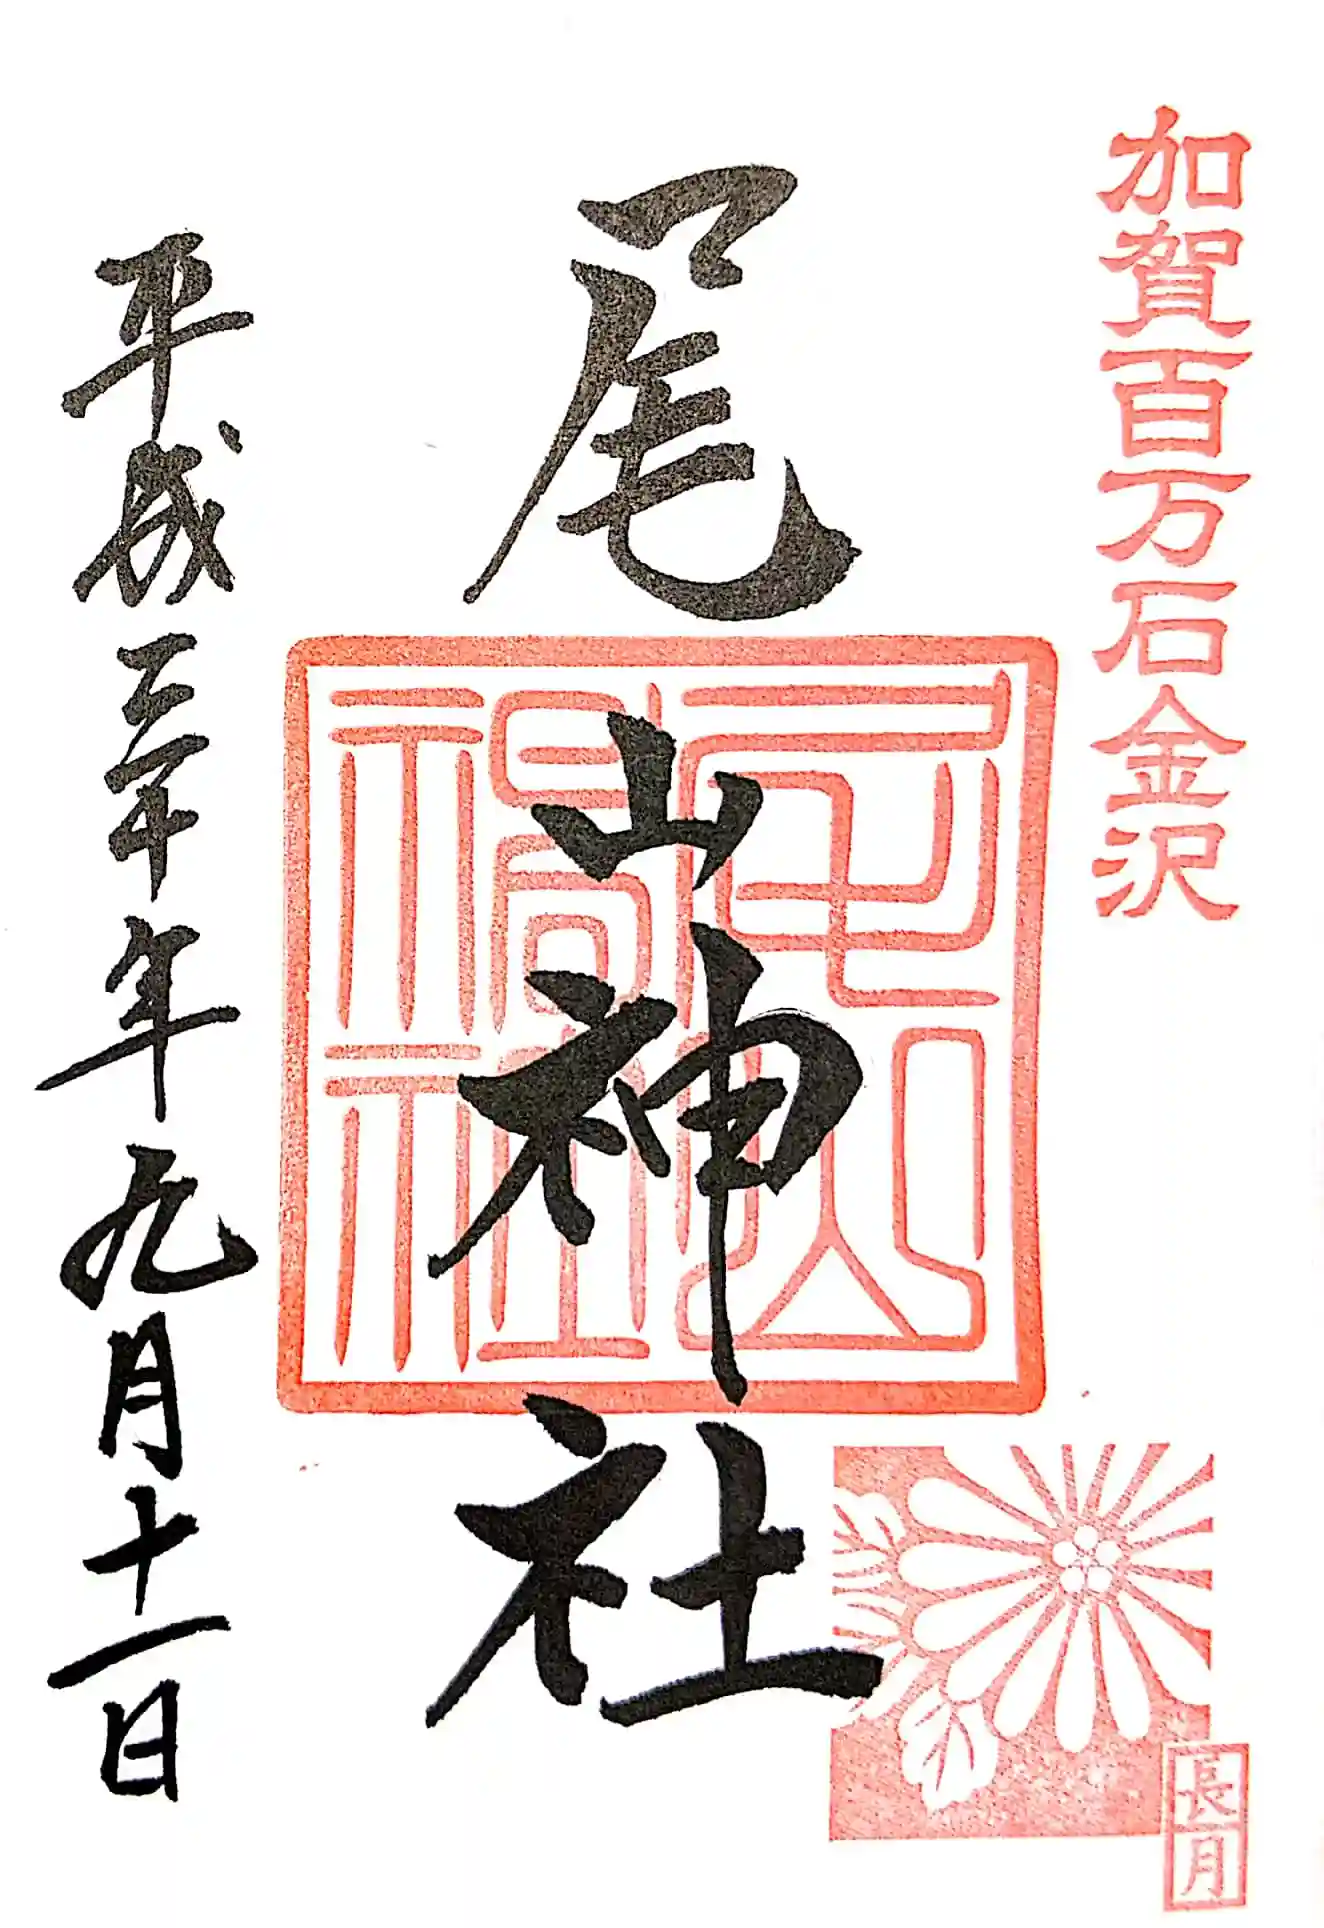 加賀百万石金沢
尾山神社
尾山神社
長月
平成三十年九月十一日